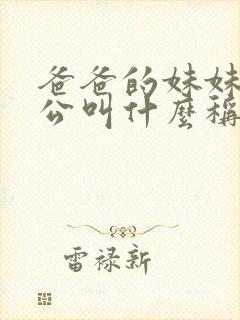 爸爸的妹妹
公叫什麼稱
雷禄新